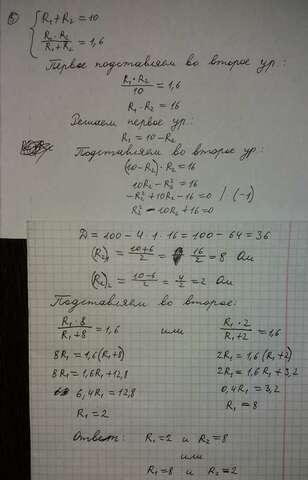 8) { R₁ + R₂ = 10
R₁ · R₂ / R₁ + R₂ = 1,6
Первое подставляем во второе ур:
R₁ · R₂ / 10 = 1,6
R₁ · R₂ = 16
Решаем первое ур:
R₁ = 10 - R₂
Подставляем во второе ур:
(10 - R₂) · R₂ = 16
10R₂ - R₂² = 16
-R₂² + 10R₂ - 16 = 0 / · (-1)
R₂² - 10R₂ + 16 = 0
D = 100 - 4 · 1 · 16 = 100 - 64 = 36
(R₂)₁ = 10+6 / 2 = 16 / 2 = 8 Ом
(R₂)₂ = 10-6 / 2 = 4 / 2 = 2 Ом
Подставляем во второе:
R₁ · 8 / R₁ + 8 = 1,6 или R₁ · 2 / R₁ + 2 = 1,6
8R₁ = 1,6(R₁+8) 2R₁ = 1,6(R₁+2)
8R₁ = 1,6R₁ + 12,8 2R₁ = 1,6R₁ + 3,2
6,4R₁ = 12,8 0,4R₁ = 3,2
R₁ = 2 R₁ = 8
Ответ: R₁ = 2 и R₂ = 8
или
R₁ = 8 и R₂ = 2